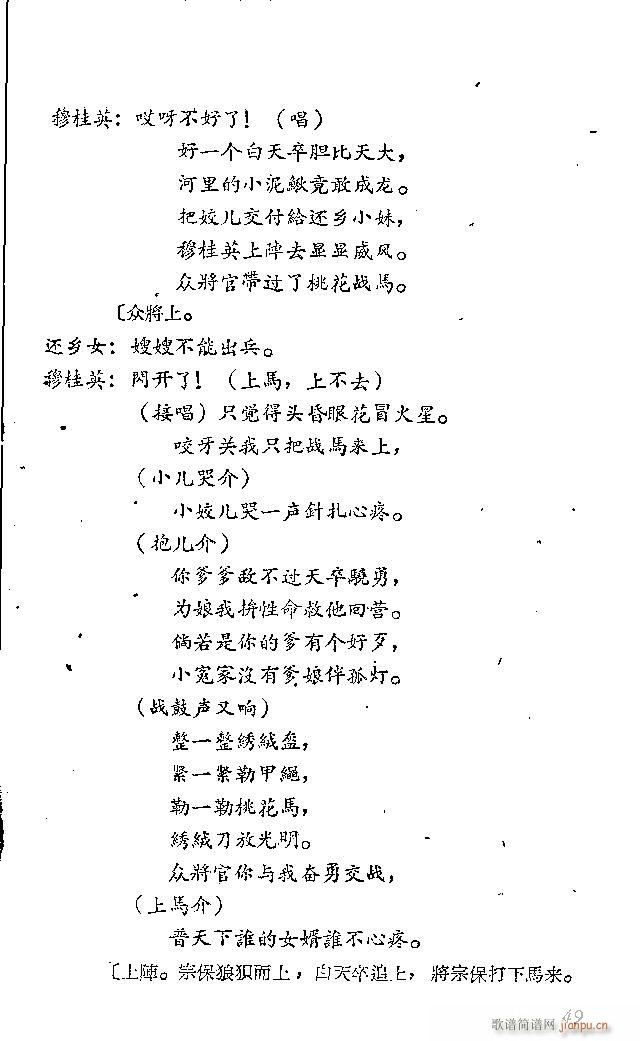 穆桂英：哎呀不好了！（唱）
好一个白天卒胆比天大，
河里的小泥鳅竟敢成龙。
把姣儿交付給还乡小妹，
穆桂英上陣去显显威风。
众將官带过了桃花战馬。
〔众將上。
还乡女：嫂嫂不能出兵。
穆桂英：閃开了！（上馬，上不去）
（接唱）只觉得头昏眼花冒火星。
咬牙关我只把战馬来上，
（小儿哭介）
小姣儿哭一声針扎心疼。
（抱儿介）
你爹爹敌不过天卒驍勇，
为娘我拚性命救他回营。
倘若是你的爹有个好歹，
小冤家沒有爹娘伴孤灯。
（战鼓声又响）
整一整綉絨盔，
紧一紧勒甲繩，
勒一勒桃花馬，
綉絨刀放光明。
众將官你与我奋勇交战，
（上馬介）
普天下誰的女婿誰不心疼。
〔上陣。宗保狼狽而上，白天卒追上，將宗保打下馬来。
49
歌谱简谱网
jianpu.cn